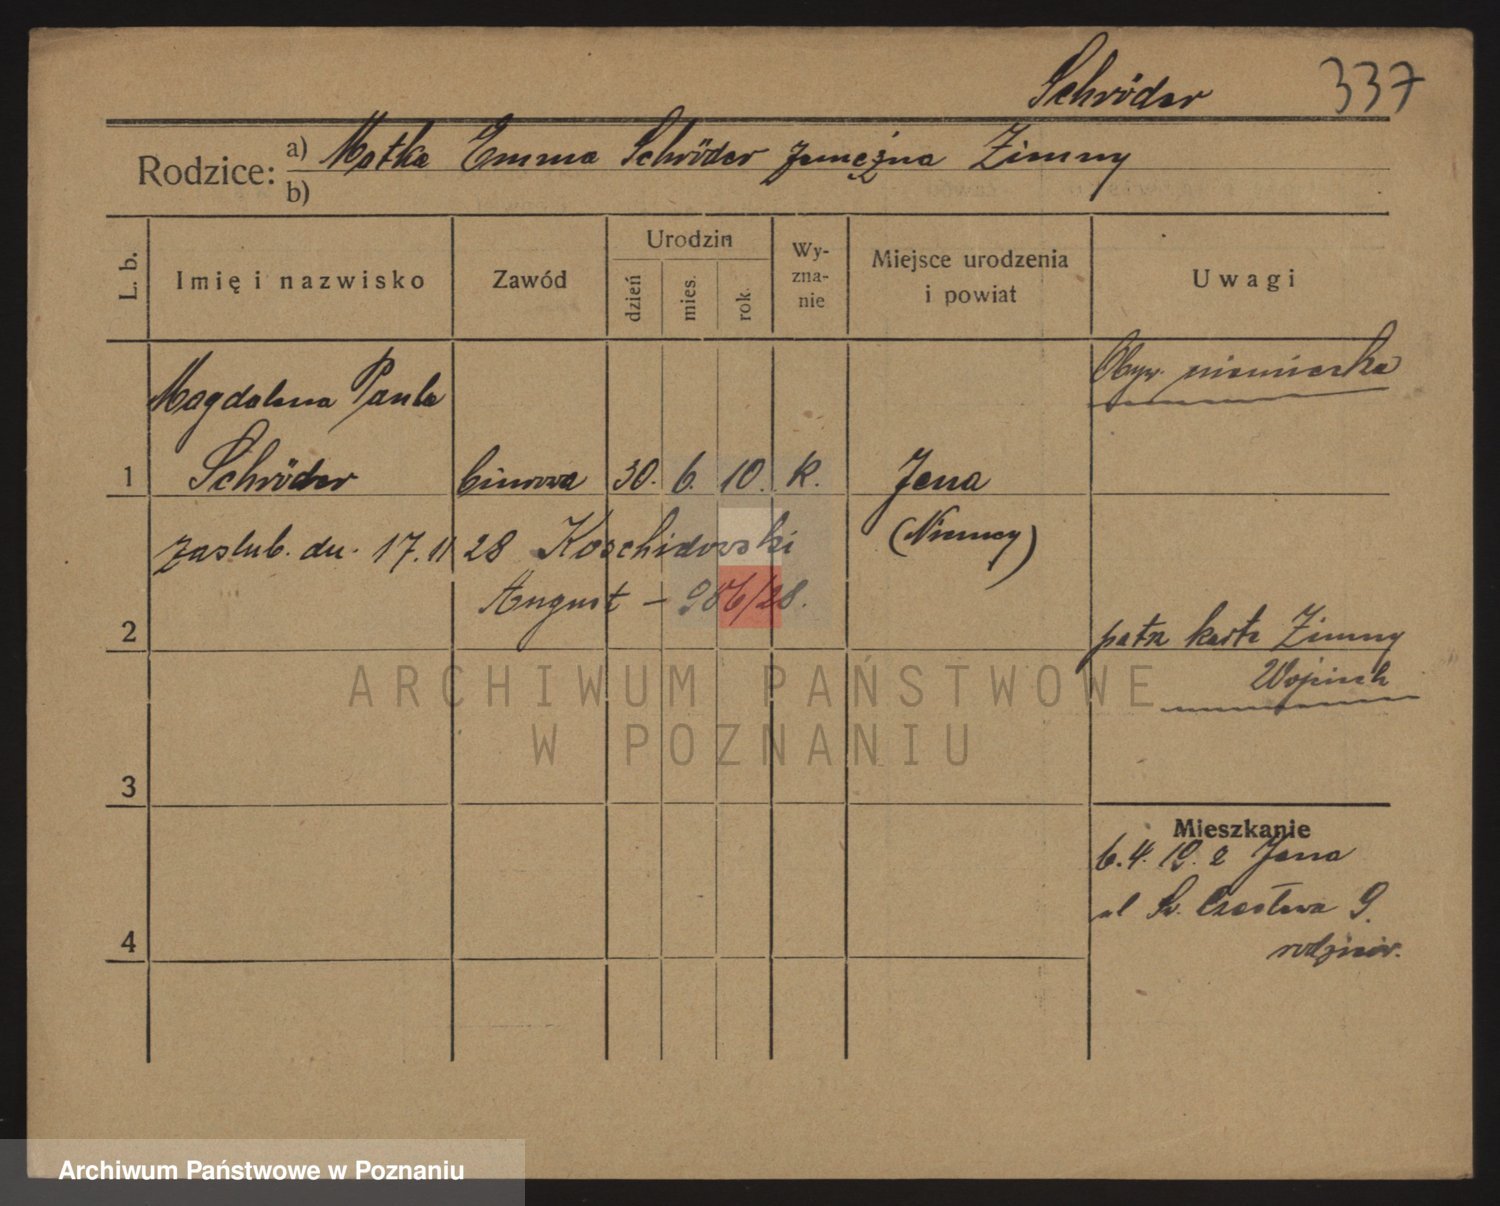 Schröder 337
Rodzice: a) Matka Emma Schröder zamężna Zimny
b)
L. b. Imię i nazwisko Zawód Urodzin dzień mies. rok. Wy-zna-nie Miejsce urodzenia i powiat Uwagi
Obyw. niemiecka
Magdalena Paula
1 Schröder biurowa 30. 6. 10. k. Jena
zaślub. dn. 17.11 28 Koschidowski (Niemcy)
August — 986/28.
2 patrz karta Zimny
Wojciech
ARCHIWUM PAŃSTWOWE
W POZNANIU
3
Mieszkanie
6.4.19. z Jena
ul Św. Czesława 9.
4
Archiwum Państwowe w Poznaniu